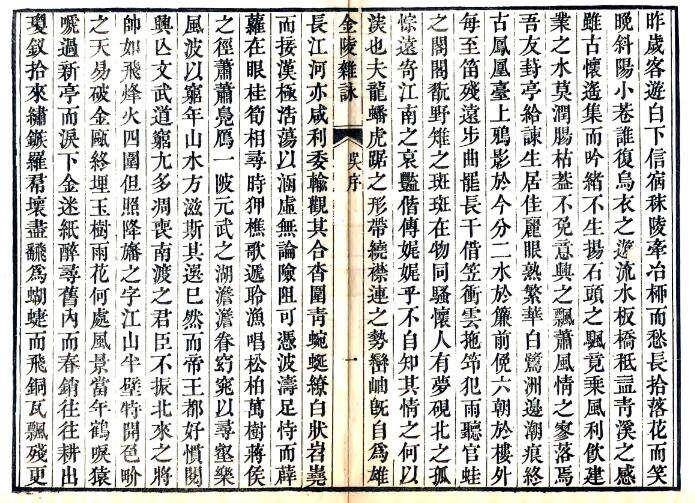 昨歲客遊白下信宿秣陵牽冶柳而愁長拾落花而笑
晚斜陽小巷誰復烏衣之遊流水板橋秪益青溪之感
雖古懷遙集而吟緒不生揚石頭之颿竟乘風利飲建
業之水莫潤腸枯蓋不免意興之飄蕭風情之寥落焉
吾友葑亭給諫生居佳麗眼熟繁華白鷺洲邊潮痕終
古鳳凰臺上鴉影於今分二水於簾前俛六朝於樓外
每至笛殘遠步曲罷長干借笠衝雲拖笻犯雨聽官蛙
之閣閣翫野雉之斑斑在物同騷懷人有夢硯北之孤
悰遠寄江南之哀豔偕傳娓娓乎不自知其情之何以
淡也夫龍蟠虎踞之形帶繞襟連之勢巒岫旣自爲雄
金陵雜詠
吳序
一
長江河亦咸利委輸觀其合沓圍靑蜿蜒繚白狀岩嶤
而接漢極浩蕩以涵虛無論險阻可憑波濤足恃而薜
蘿在眼桂筍相尋時狎樵歌遞聆漁唱松柏萬樹蔣侯
之徑蕭蕭鳧鴈一陂元武之湖澹澹眷窈窕以尋壑樂
風波以窮年山水方滋斯其選已然而帝王都好慣閱
興亡文武道窮尤多凋喪南渡之君臣不振北來之將
帥如飛烽火四圍但照降旛之字江山半壁特開邑畍
之天易破金甌終埋玉樹雨花何處風景當年鶴唳猿
嗁過新亭而淚下金迷紙醉尋舊內而春銷往往耕出
瓊釵拾來繡鏃羅帬壞盡飜爲蝴蝶而飛銅瓦飄殘更